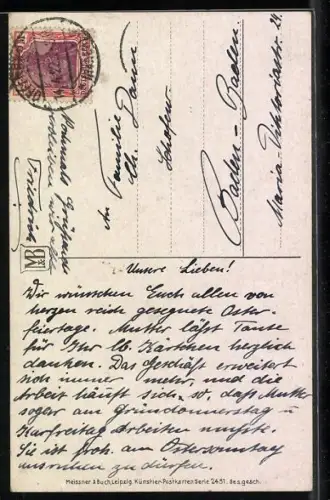 Unsere Lieben!
Wir wünschen Euch allen von
herzen reich gesegnete Oster-
feiertage. Mutter läßt Tante
für Ihr lb. Kärtchen herzlich
danken. Das Geschäft erweitert
sich immer mehr, und die
Arbeit häuft sich, so, daß Mutter
sogar am Gründonnerstag u.
Karfreitag arbeiten mußte.
Sie ist froh, am Ostersonntag
ausruhen zu dürfen.
Nochmals Grüßend
Friedrich
An Familie
Baden-Baden.
Maria-Viktoriastr. 29.
M&B
Meissner & Buch, Leipzig. Künstler-Postkarten Serie 2451. Ges. gesch.